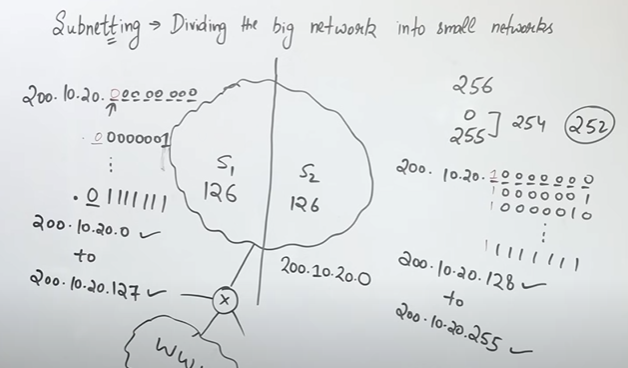 Subnetting → Dividing the big network into small networks
200.10.20.00000000
00000001
⋮
.01111111
200.10.20.0 ✓
to
200.10.20.127 ✓
S1
126
S2
126
200.10.20.0
X
WWW
256
0
255] 254 252
200.10.20.10000000
10000001
10000010
⋮
11111111
200.10.20.128 ✓
to
200.10.20.255 ✓